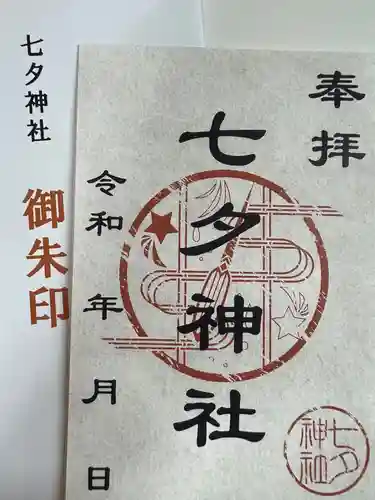 七夕神社
御朱印
奉拝
七夕神社
令和 年 月 日
七夕
神社